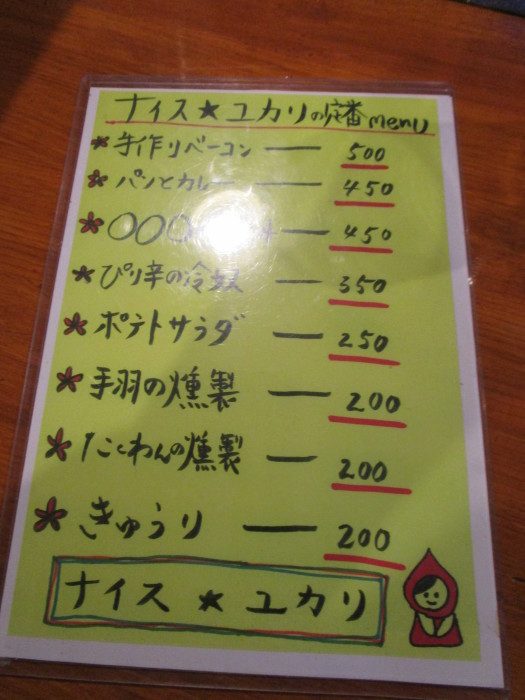 ナイス★ユカリの定番menu
*手作りベーコン ― 500
*パンとカレー ― 450
*〇〇〇 ― 450
*ぴり辛の冷奴 ― 350
*ポテトサラダ ― 250
*手羽の燻製 ― 200
*たくわんの燻製 ― 200
*きゅうり ― 200
ナイス★ユカリ